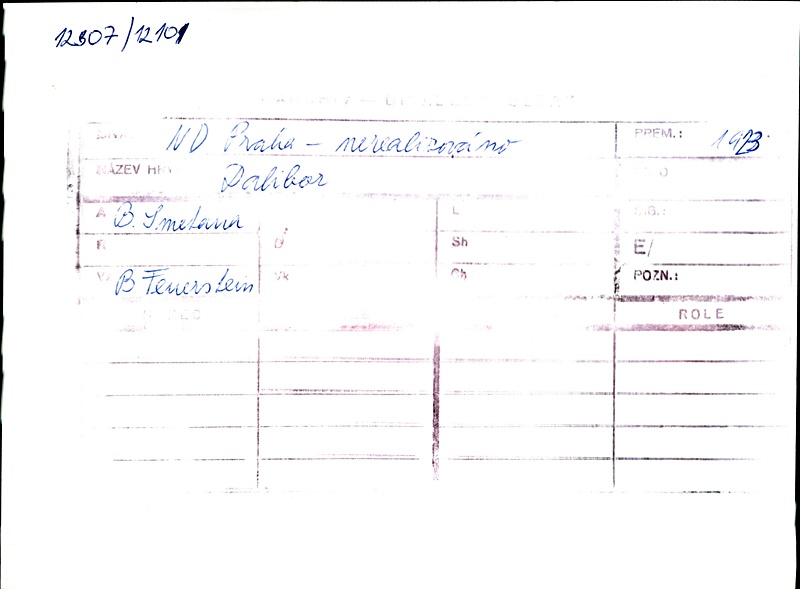 12307/12101
ND Praha - nerealizováno PREM.: 1923
NÁZEV HRY Dalibor
A B. Smetana L
R Sh E/
B Feuerstein Vk Ch POZN.:
ROLE